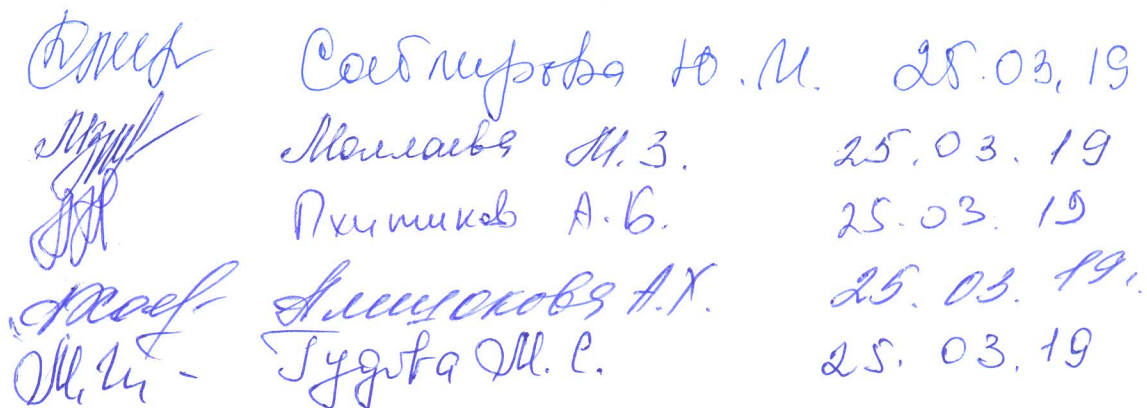 Сабтирова Ю.М. 25.03.19
Моллаева М.З. 25.03.19
Пхитиков А.Б. 25.03.19
Алишокова А.Х. 25.03.19.
Гудова М.С. 25.03.19